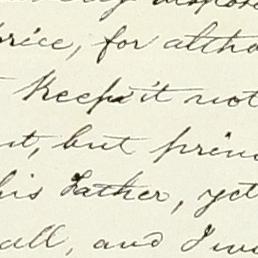 price, for altho
Keep it not
but prin
his Father, yet
all, and I wo